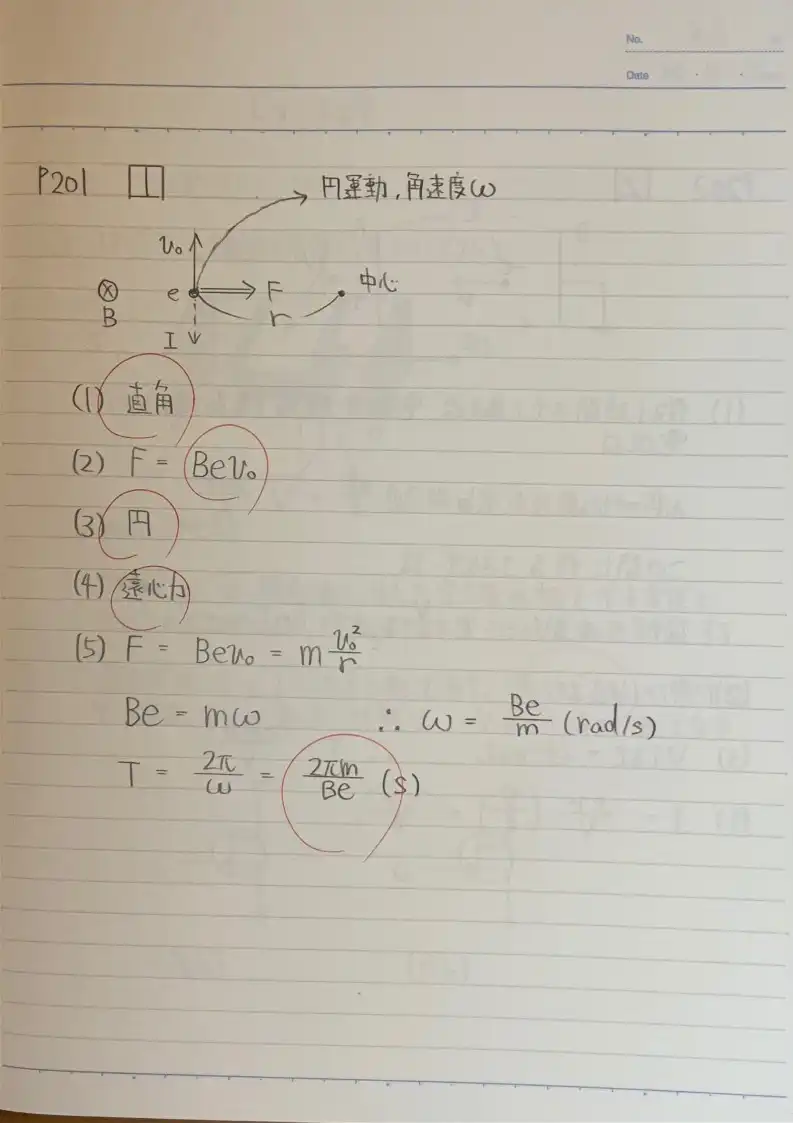 No.
Date
P201 1
円運動,角速度ω
v₀
e F 中心
B r
I
(1) 直角
(2) F = Bev₀
(3) 円
(4) 遠心力
(5) F = Bev₀ = m v₀²/r
Be = mω ∴ ω = Be/m (rad/s)
T = 2π/ω = 2πm/Be (s)